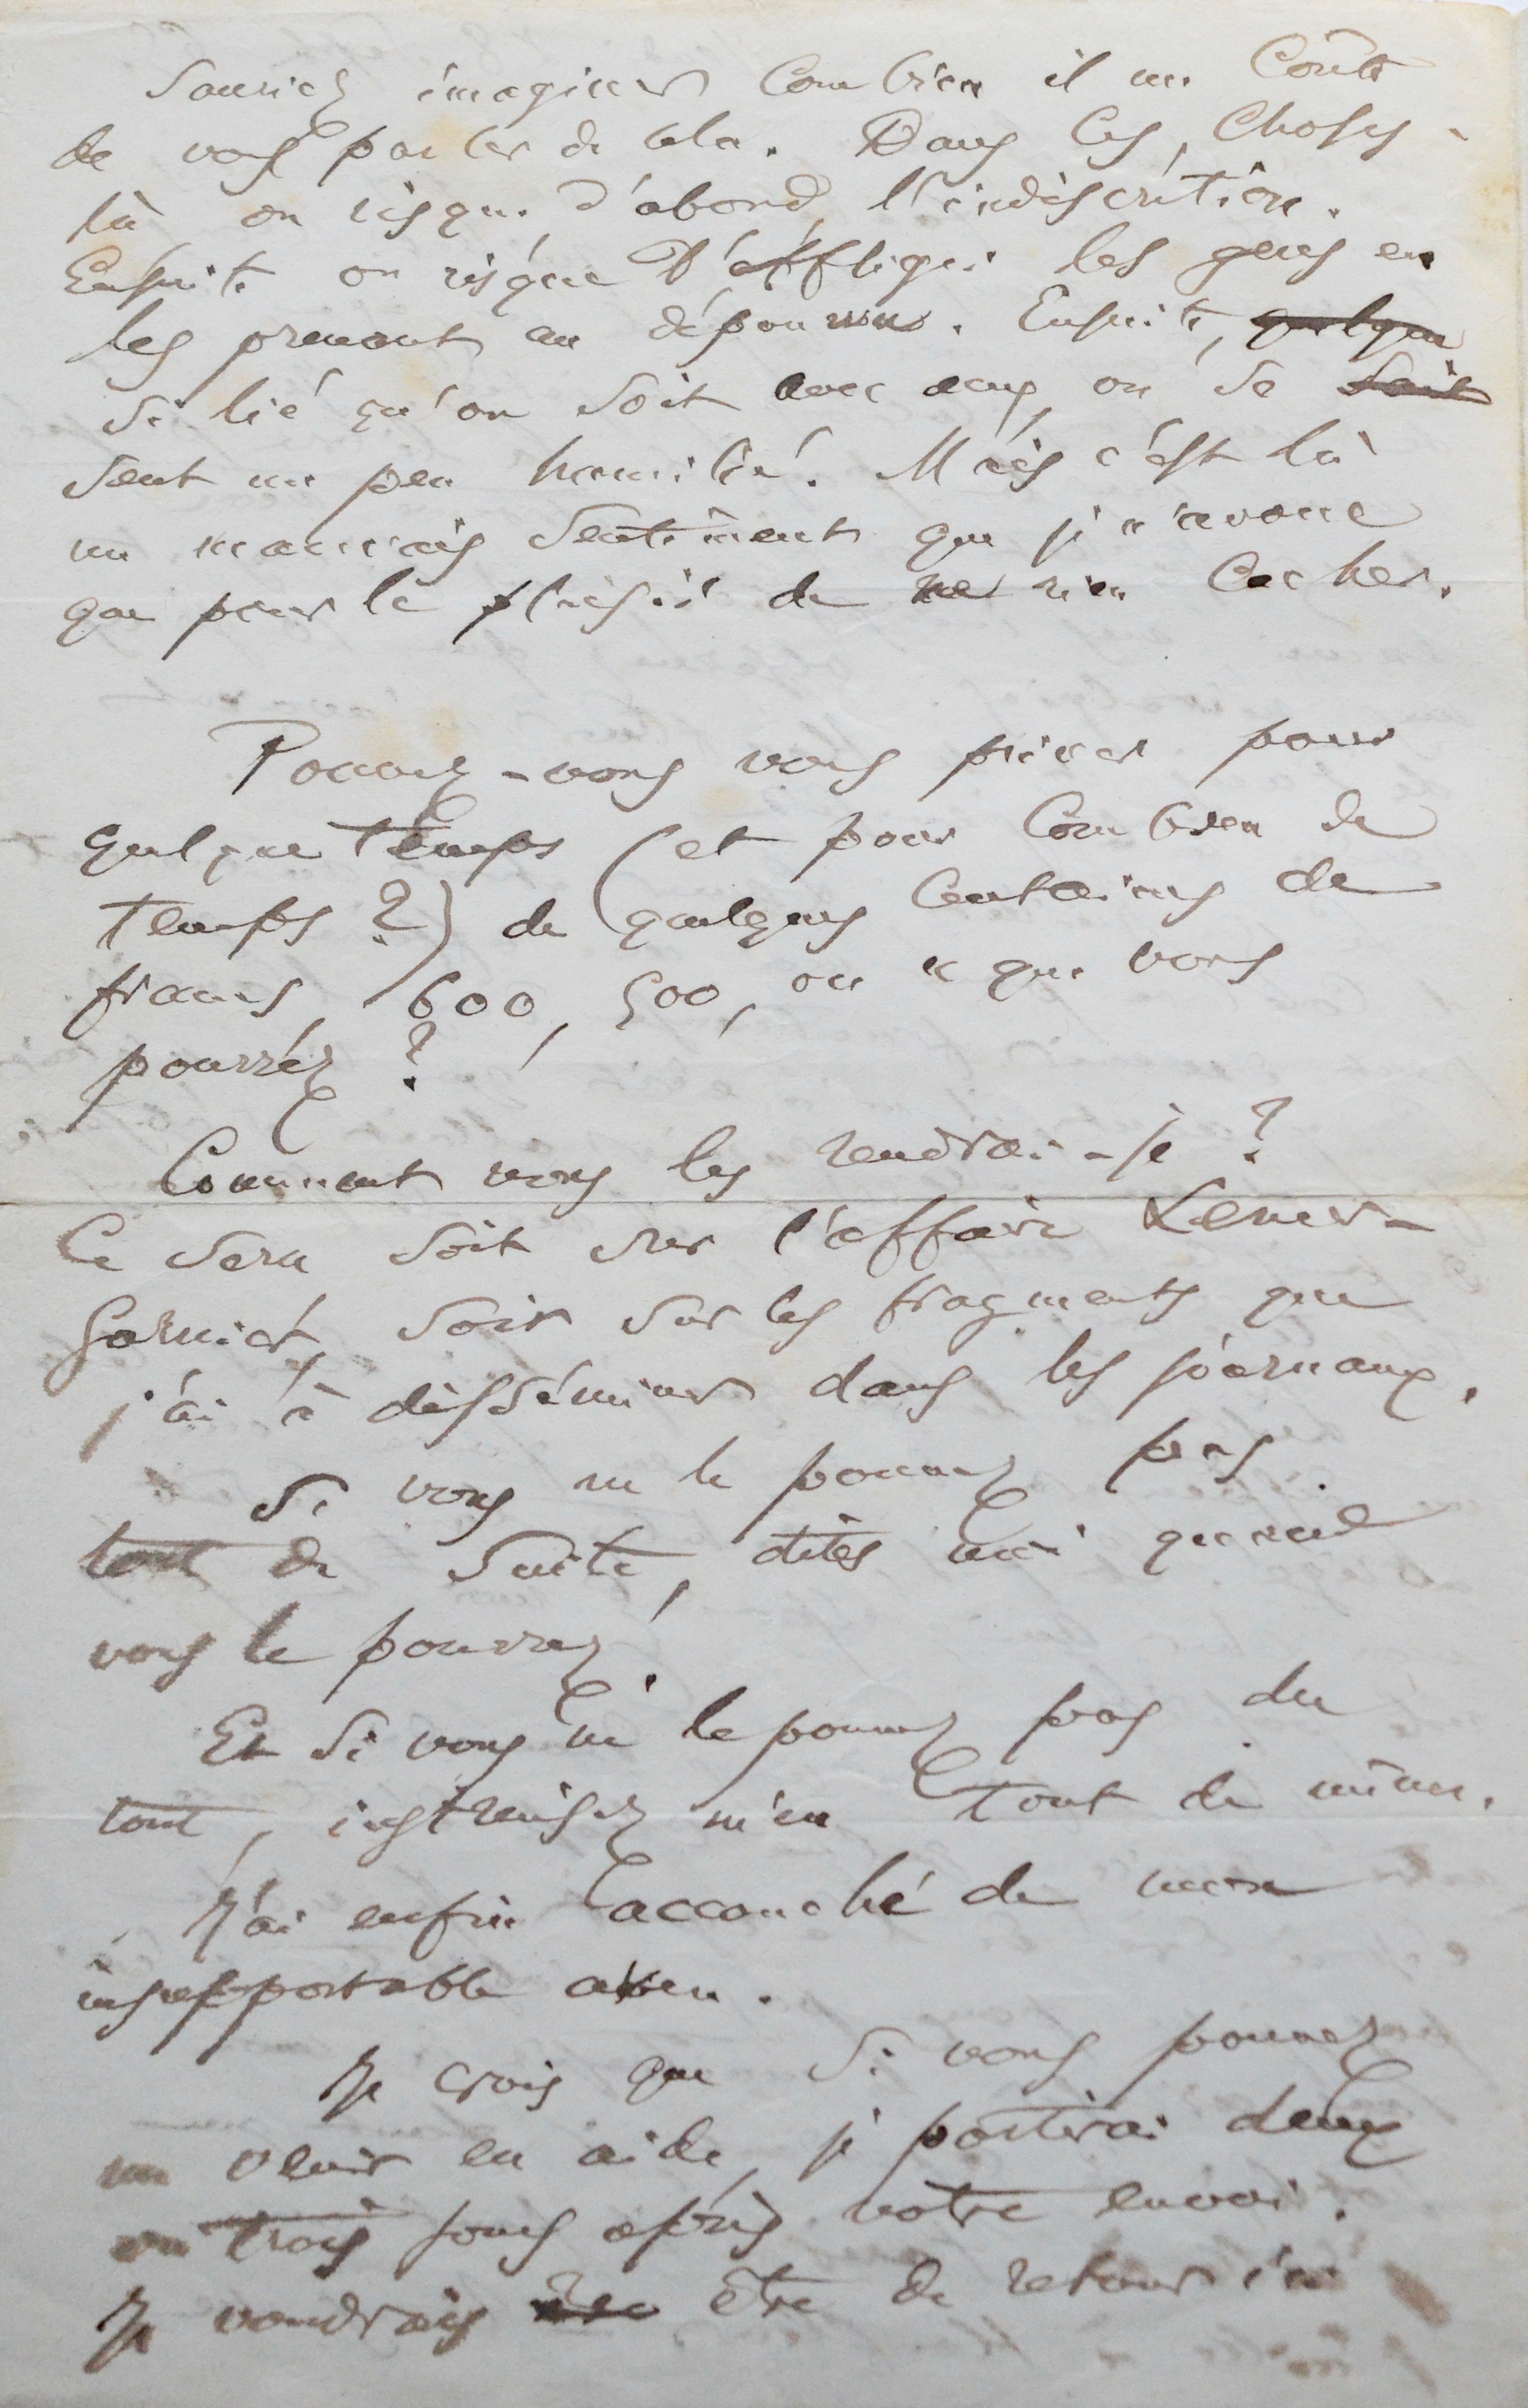 sauriez imaginer combien il me coûte
de vous parler de cela. Dans ces choses-
là on risque d'abord l'indiscrétion.
Ensuite on risque d'affliger les gens en
les prenant au dépourvu. Ensuite, quelque
si lié qu'on soit avec eux, on se soit
sent un peu humilié. Mais c'est là
un mauvais sentiment que je n'avoue
que pour le plaisir de ne rien cacher.
Pouvez-vous vous priver pour
quelque temps (et pour combien de
temps ?) de quelques centaines de
francs, 600, 500, ou ce que vous
pourrez ?
Comment vous les rendrai-je ?
Ce sera soit sur l'affaire Lemer-
Garnier, soit sur les fragments que
j'ai à disséminer dans les journaux.
Si vous ne le pouvez pas
tout de suite, dites moi quand
vous le pourrez.
Et si vous ne le pouvez pas du
tout, instruisez m'en tout de même.
J'ai enfin accouché de mon
insupportable aveu.
Je crois que si vous pouvez
me venir en aide, je partirai deux
ou trois jours après votre envoi.
Je voudrais être de retour ici